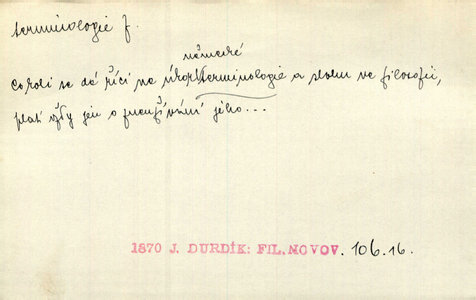 terminologie f.
německé
Co koli se dá říci na úkor terminologie a slohu ve filosofii,
platí vždy jen o zneužívání jeho...
1870 J. DURDÍK: FIL.NOVOV. 106.16.